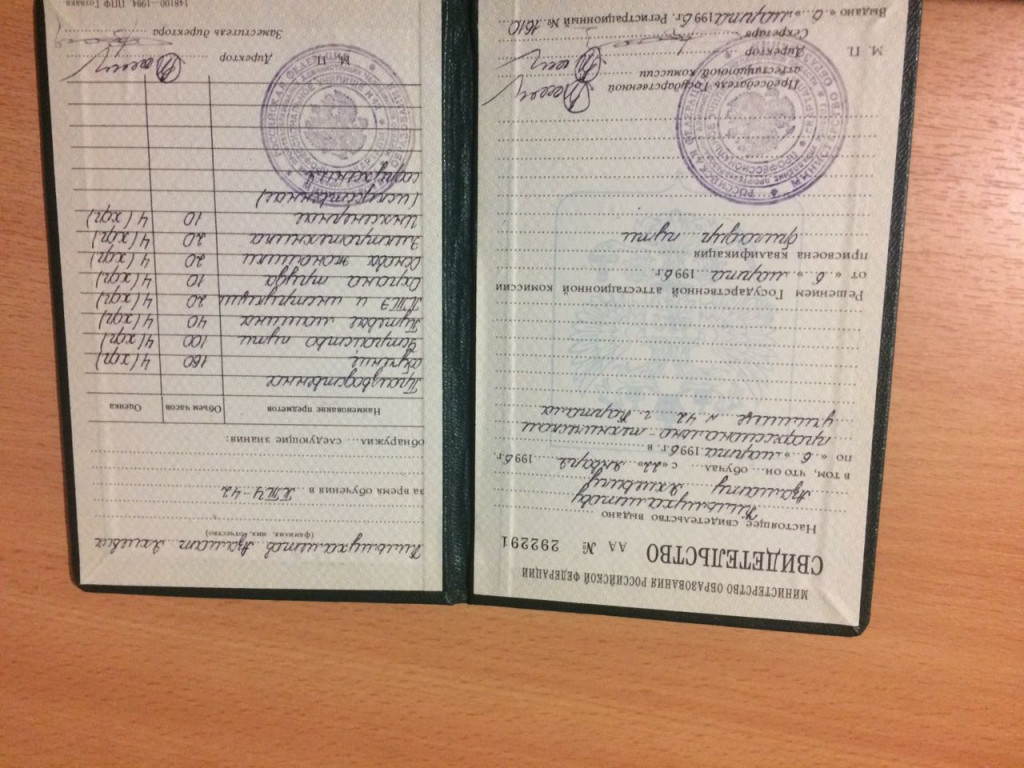 МИНИСТЕРСТВО ОБРАЗОВАНИЯ РОССИЙСКОЙ ФЕДЕРАЦИИ
СВИДЕТЕЛЬСТВО
АА № 292291
Настоящее свидетельство выдано
Кильмухаметову
Азамату
в том, что он обучал с «22» января 1996 г.
по «6» марта 1996 г. в
профессионально-техническом
училище № 42 г. Карталы
Решением Государственной аттестационной комиссии
от «6» марта 1996 г.
присвоена квалификация
пути
Председатель Государственной
аттестационной комиссии
М. П. Директор
Секретарь
Выдано «6» марта 1996 г. Регистрационный № 1610
Кильмухаметов Азамат
(фамилия, имя, отчество)
за время обучения в ПТУ-42
обнаружил следующие знания:
Наименование предметов Объем часов Оценка
Производственное
обучение 160 4 (хор)
Устройство пути 100 4 (хор)
Путевые машины 40 4 (хор)
ПТЭ и инструкции 20 4 (хор)
Охрана труда 10 4 (хор)
Основы экономики 20 4 (хор)
Электротехника 20 4 (хор)
Инженерное 10 4 (хор)
(искусственное)
сооружения
М. П. Директор
Заместитель директора
148100—1994 ППФ Гознака